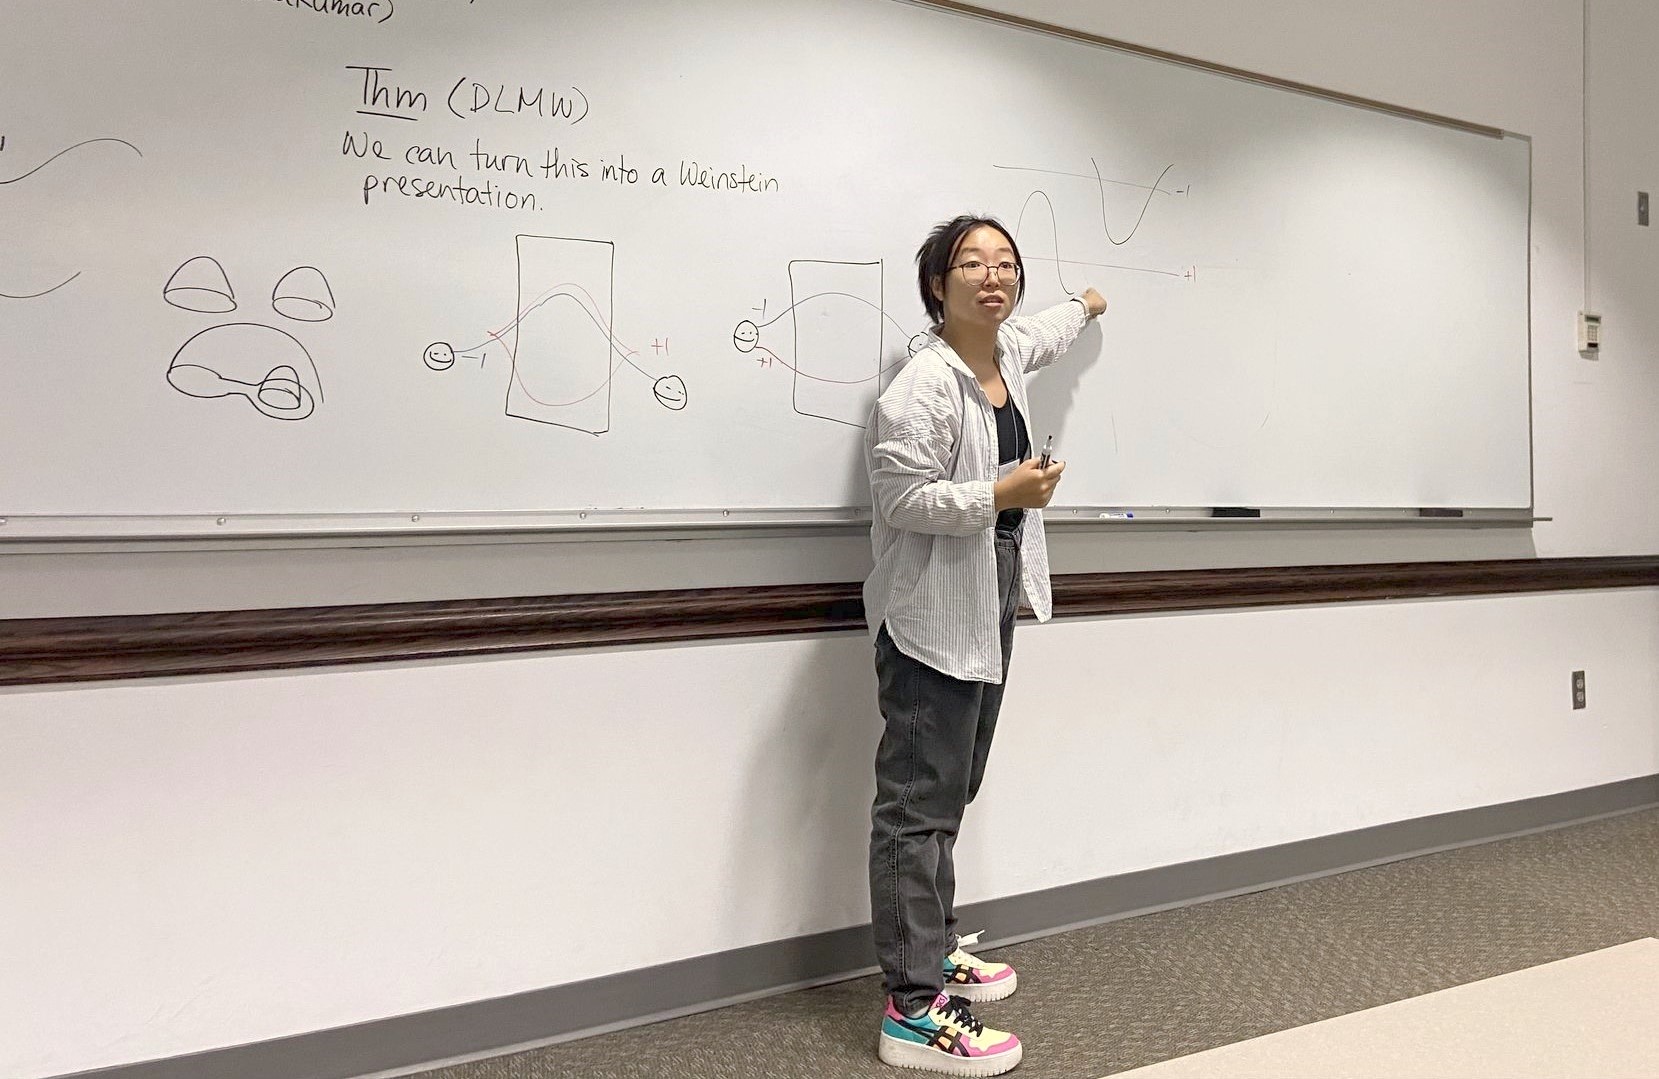 Thm (DLMW)
We can turn this into a Weinstein
presentation.
-1
+1
-1
+1
-1
+1